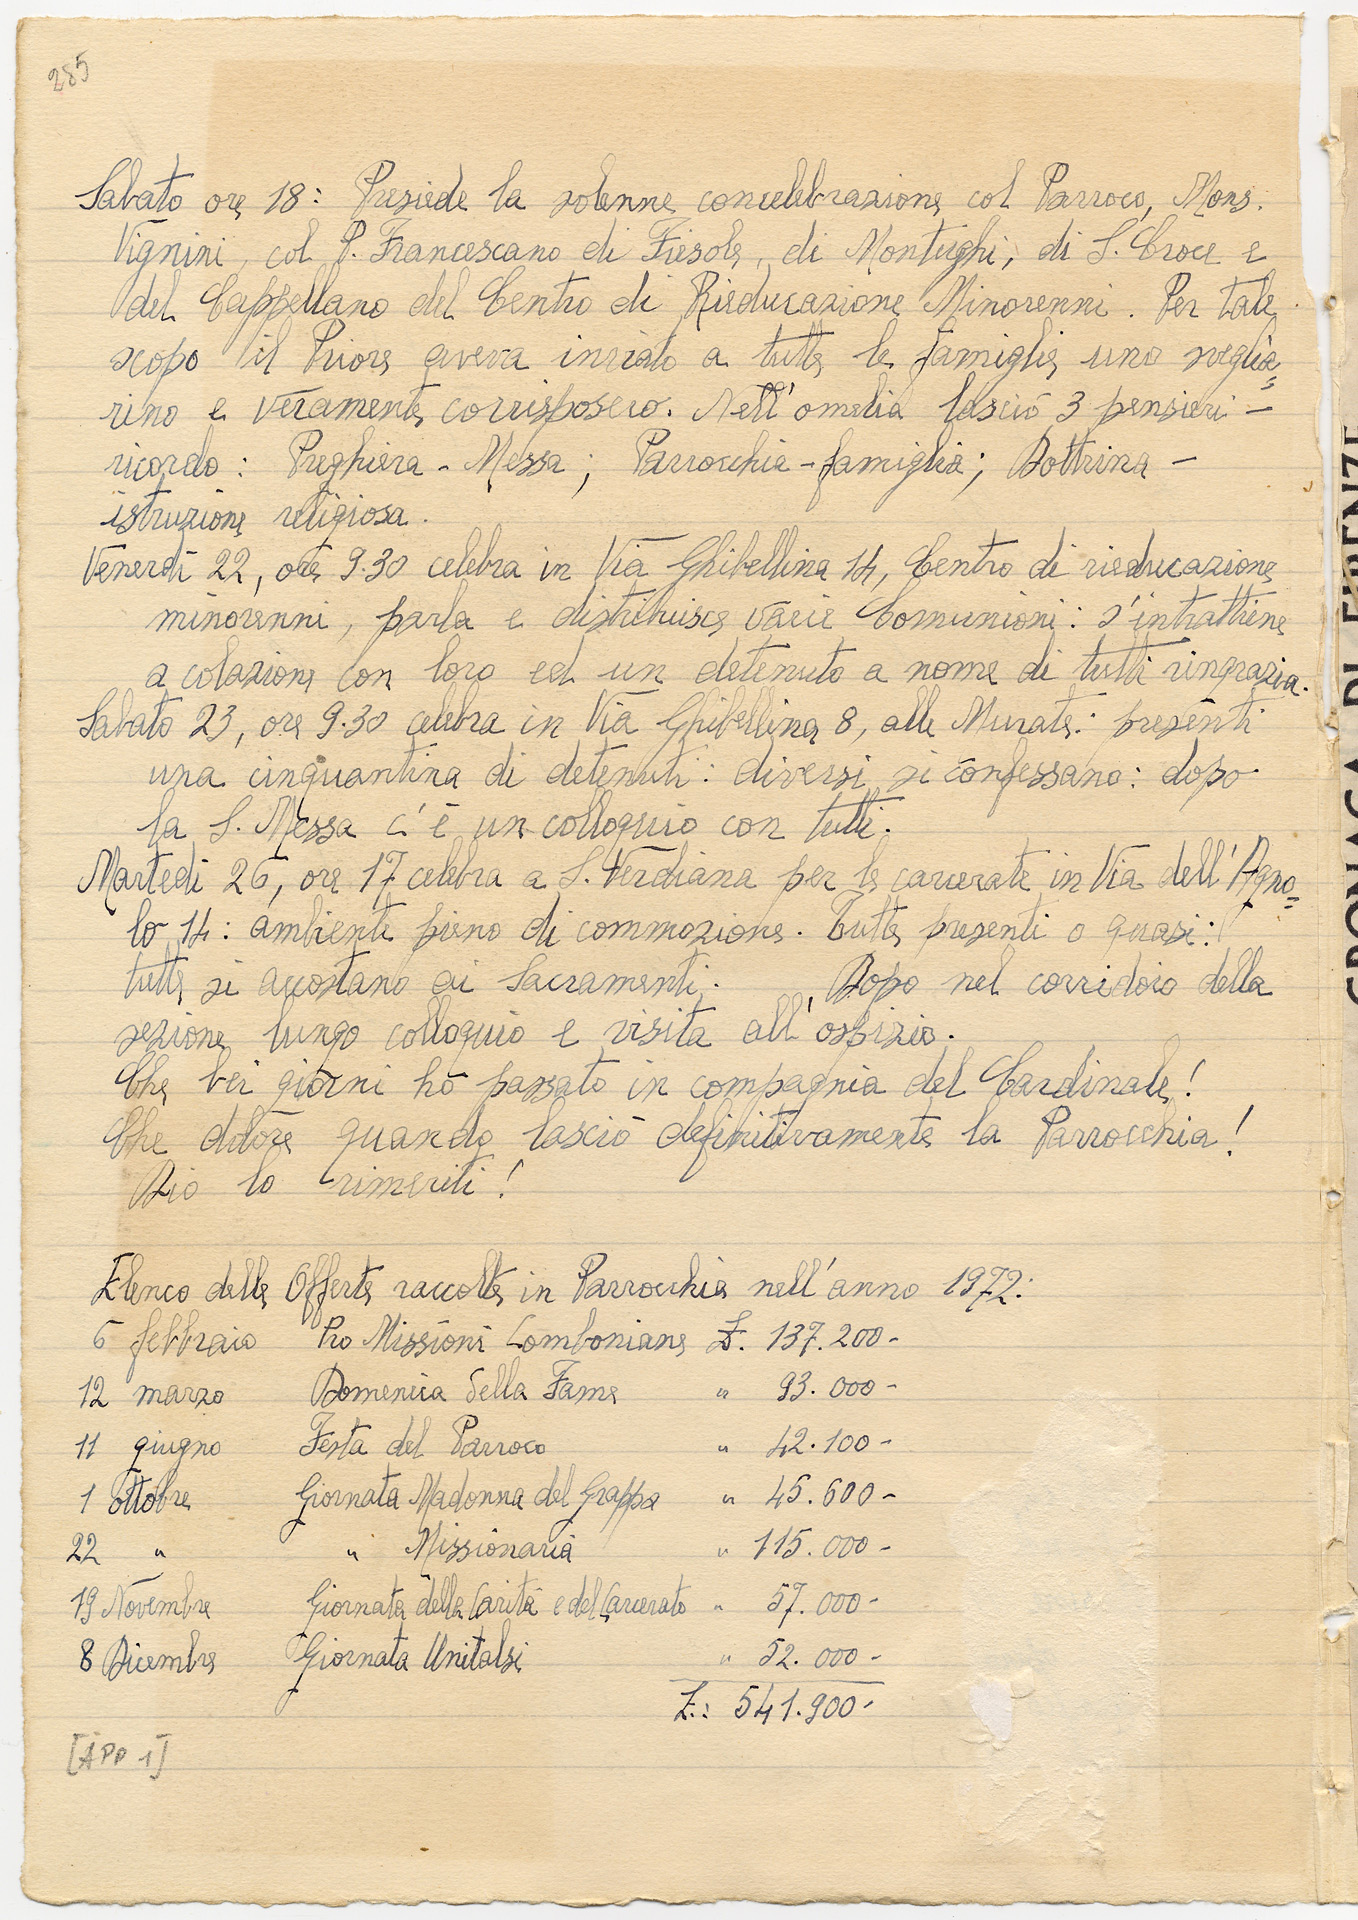 285
Sabato ore 18: Presiede la solenne concelebrazione col Parroco, Mons.
Vignini, col P. Francescano di Fiesole, di Montughi, di S. Croce e
del Cappellano del Centro di Rieducazione Minorenni. Per tale
scopo il Priore aveva inviato a tutte le famiglie uno sveglia=
rino e veramente corrisposero. Nell'omelia lasciò 3 pensieri -
ricordo: Preghiera - Messa; Parrocchia - famiglia; Dottrina -
istruzione religiosa.
Venerdì 22, ore 9.30 celebra in Via Ghibellina 14, Centro di rieducazione
minorenni, parla e distribuisce varie Comunioni: s'intrattiene
a colazione con loro ed un detenuto a nome di tutti ringrazia.
Sabato 23, ore 9.30 celebra in Via Ghibellina 8, alle Murate: presenti
una cinquantina di detenuti: diversi si confessano: dopo
la S. Messa c'è un colloquio con tutti.
Martedì 26, ore 17 celebra a S. Verdiana per le carcerate in Via dell'Agno=
lo 14: ambiente pieno di commozione. Tutte presenti o quasi:
tutte si accostano ai Sacramenti. Dopo nel corridoio della
sezione lungo colloquio e visita all'ospizio.
Che bei giorni hò passato in compagnia del Cardinale!
Che dolore quando lasciò definitivamente la Parrocchia!
Dio lo rimeriti!
Elenco delle Offerte raccolte in Parrocchia nell'anno 1972:
6 febbraio Pro Missioni Comboniane £. 137.200-
12 marzo Domenica della Fame " 93.000-
11 giugno Festa del Parroco " 42.100-
1 ottobre Giornata Madonna del Grappa " 45.600-
22 " " Missionaria " 115.000-
19 Novembre Giornata della Carità e del Carcerato " 57.000-
8 Dicembre Giornata Unitalsi " 52.000-
£.: 541.900-
[APP 1]
CRONACA DI FIRENZE